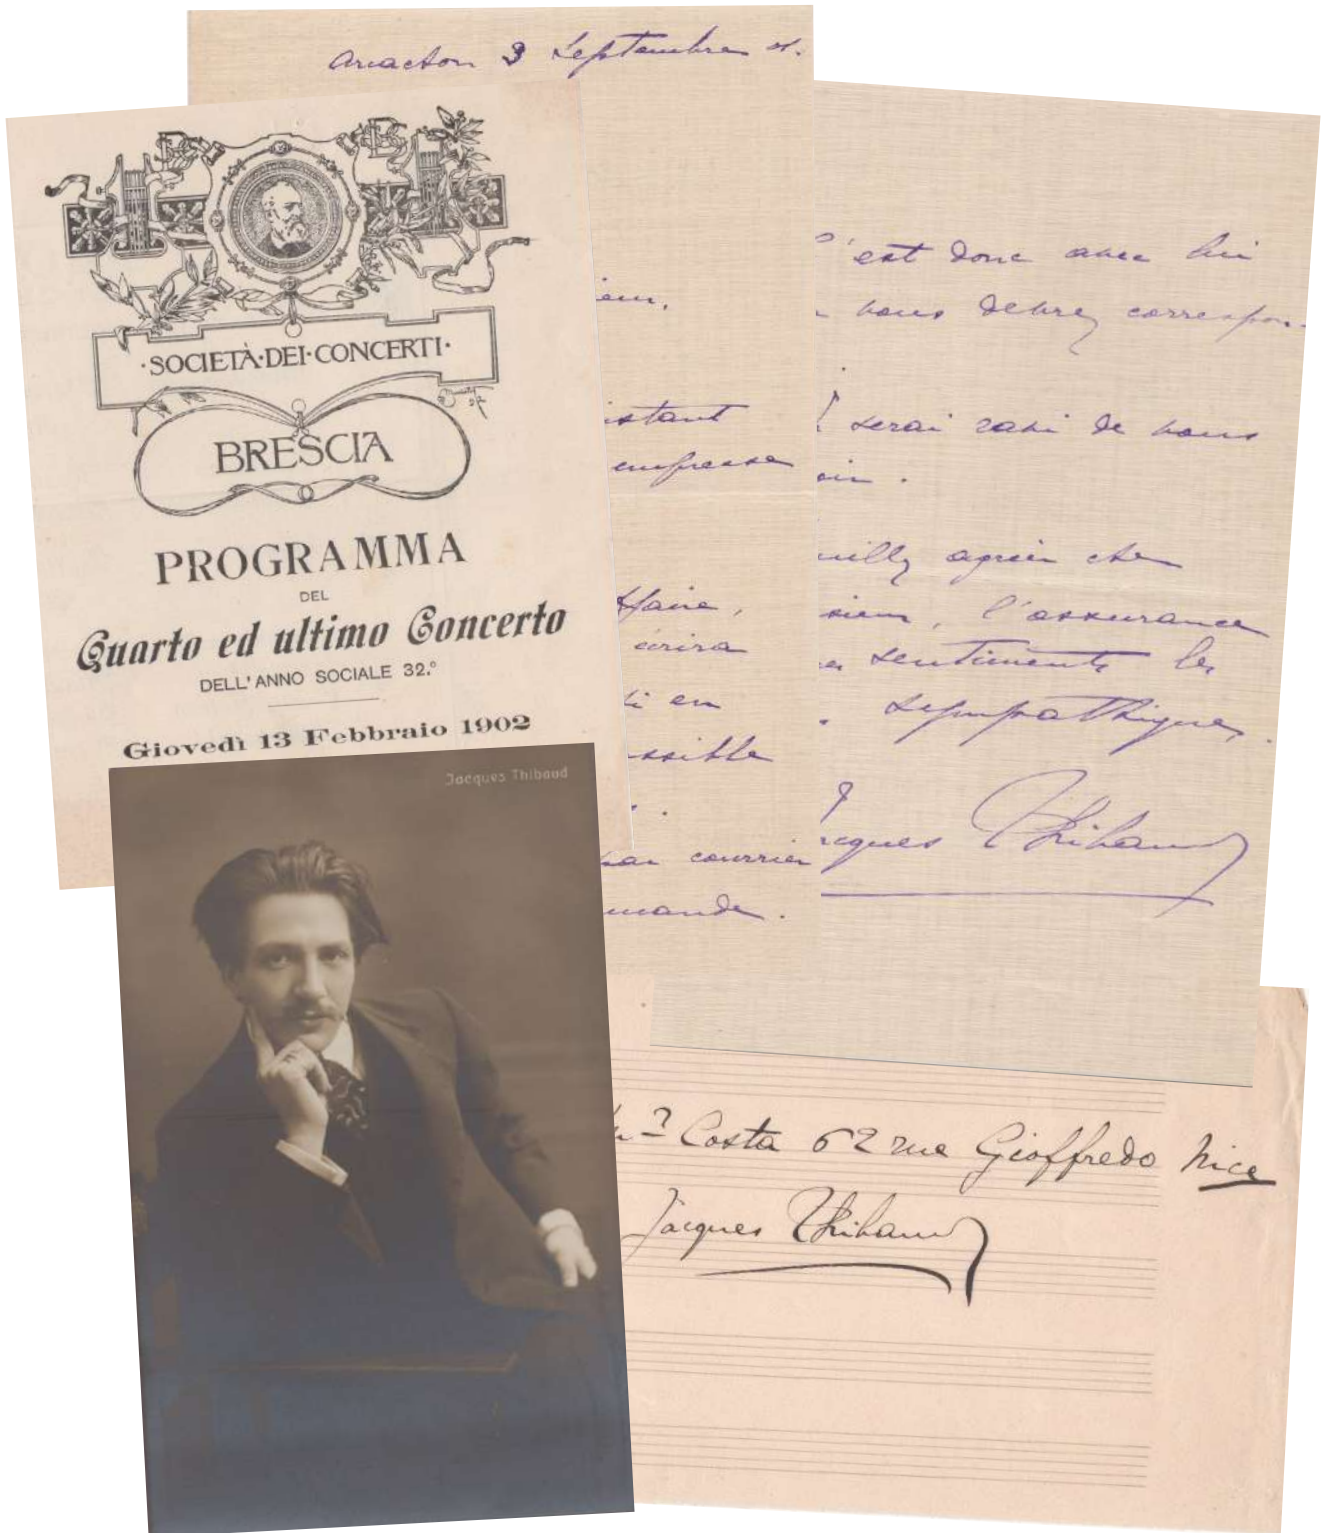 Arcachon 3 Septembre
·SOCIETÀ·DEI·CONCERTI·
BRESCIA
PROGRAMMA
DEL
Quarto ed ultimo Concerto
DELL'ANNO SOCIALE 32.°
Giovedì 13 Febbraio 1902
Jacques Thibaud
ieur.
istant
empresse
ffaire,
écrira
di en
ssible
par courrier
mande.
C'est donc avec lui
vous devrez correspon-
serai ravi de vous
oir.
euillez agréer cher
sieur, l'assurance
es sentiments les
sympathiques.
Jacques Thibaud
Costa 62 rue Gioffredo Nice
Jacques Thibaud